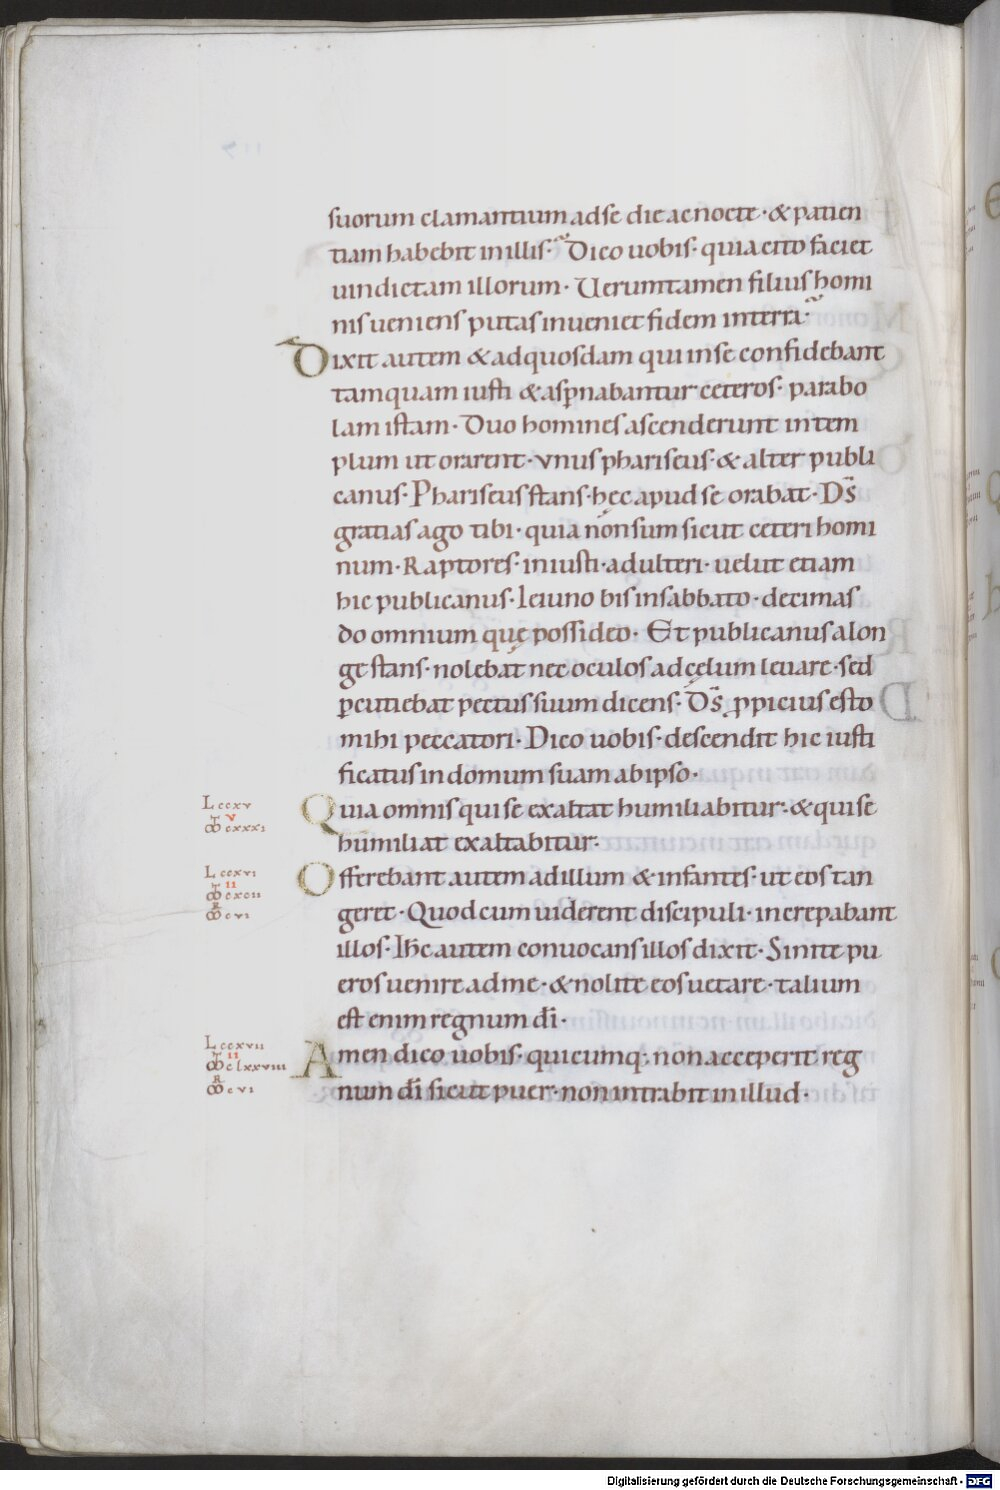 suorum clamantium adse die ac nocte · & patien
tiam habebit in illis · Dico uobis · quia cito faciet
uindictam illorum · Uerumtamen filius homi
nis ueniens putas inueniet fidem in terra ·
Dixit autem & ad quosdam qui in se confidebant
tamquam iusti & asp̄nabantur ceteros · parabo
lam istam · Duo homines ascenderunt in tem
plum ut orarent · vnus phariseus · & alter publi
canus · Phariseus stans · hęc apud se orabat · D̄s
gratias ago tibi · quia non sum sicut ceteri homi
num · Raptores · iniusti · adulteri · uelut etiam
hic publicanus · Ieiuno bis in sabbato · decimas
do omnium quę possideo · Et publicanus a lon
ge stans · nolebat nec oculos ad cęlum leuare · sed
ꝑcutiebat pectus suum dicens · D̄s ꝓpicius esto
mihi peccatori · Dico uobis · descendit hic iusti
ficatus in domum suam ab ipso ·
L ccxv
Quia omnis qui se exaltat humiliabitur · & qui se
V
M ccxxxi
humiliat exaltabitur ·
L ccxvi
Offerebant autem ad illum & infantes · ut eos tan
II
M cxcii
R
M cvi
geret · Quod cum uiderent discipuli · increpabant
illos · Ihc autem conuocans illos dixit · Sinite pu
eros uenire ad me · & nolite eos uetare · talium
est enim regnum dī ·
L ccxvii
Amen dico uobis · quicumq; non acceperit reg
II
M clxxviii
R
M cvi
num dī sicut puer · non intrabit in illud ·
Digitalisierung gefördert durch die Deutsche Forschungsgemeinschaft - DFG